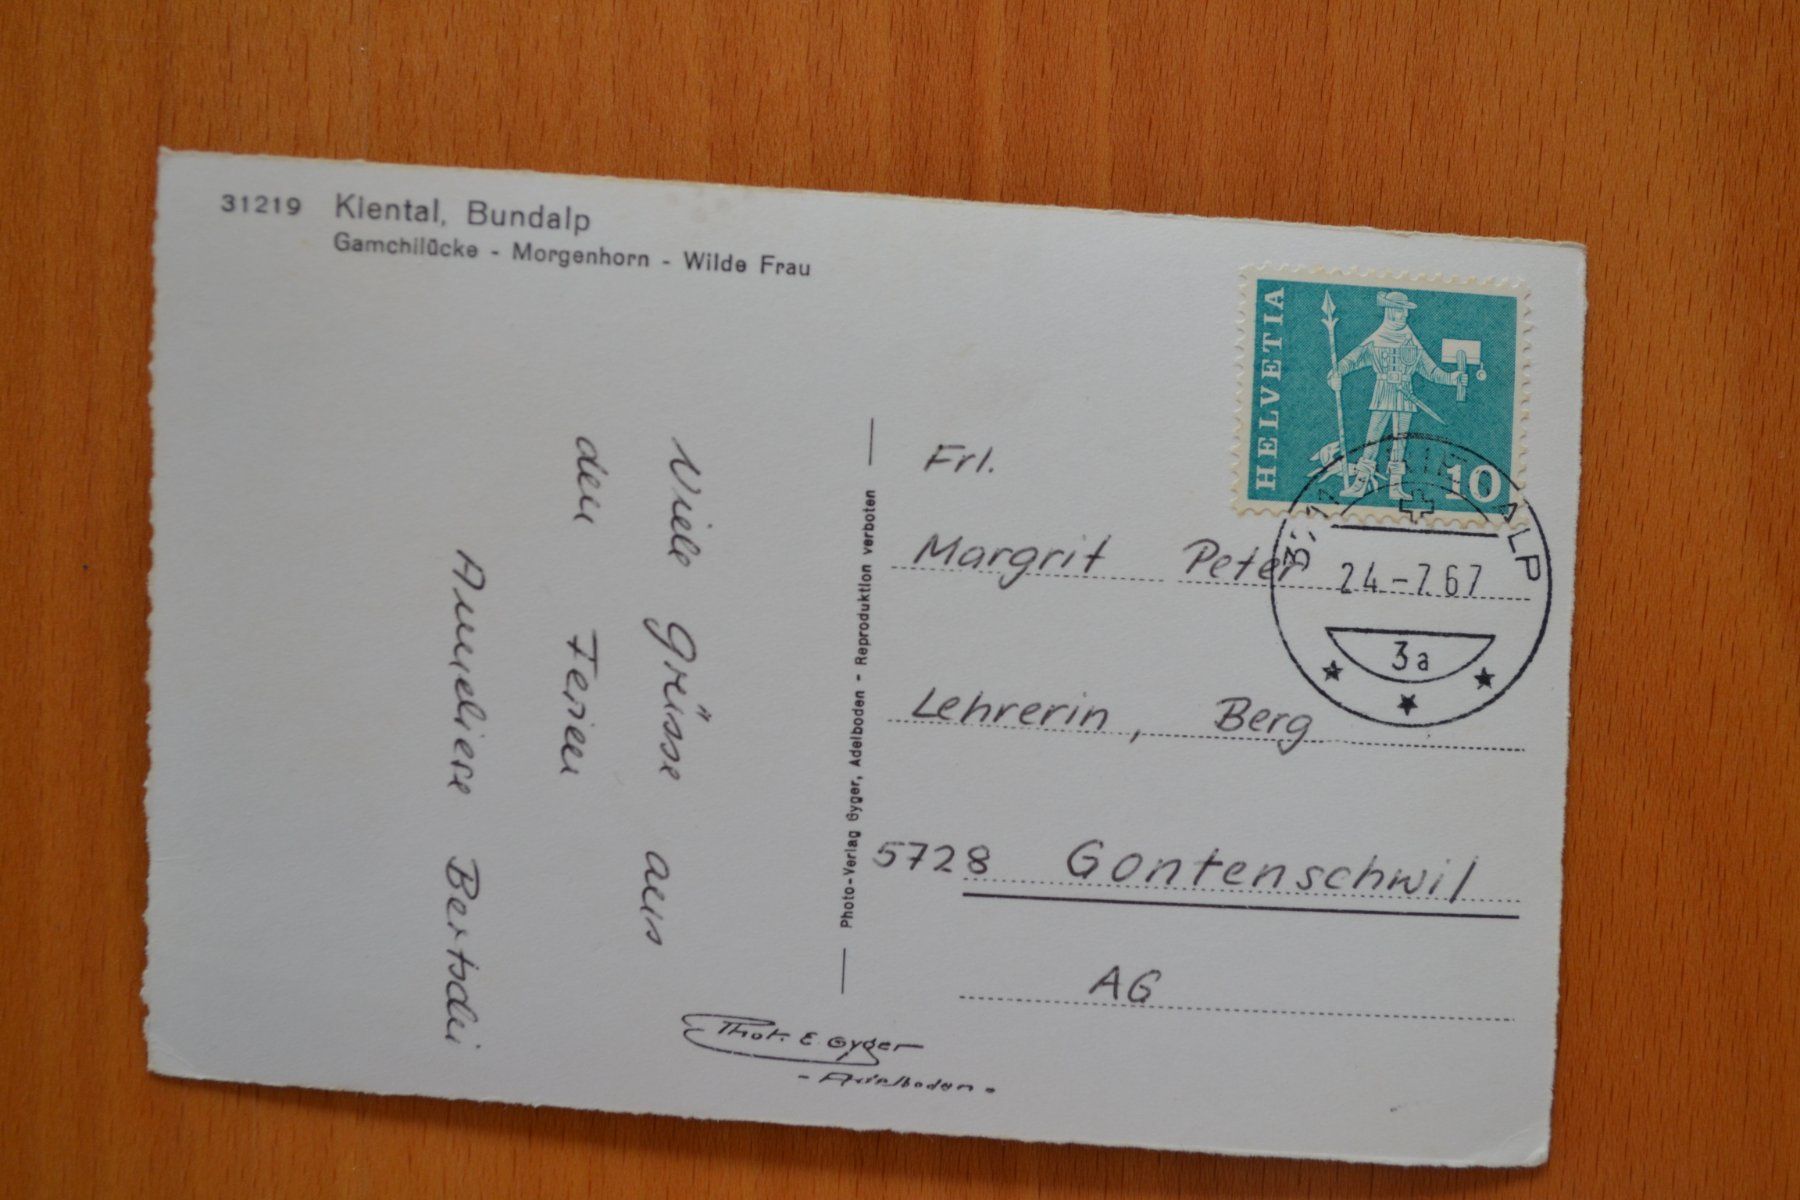 31219 Kiental, Bundalp
Gamchilücke - Morgenhorn - Wilde Frau
HELVETIA
10
ALP
24.-7.67
3a
Viele Grüsse aus
den Ferien
Anneliese Bertschi
Photo-Verlag Gyger, Adelboden - Reproduktion verboten
Frl.
Margrit Peter
Lehrerin, Berg
5728 Gontenschwil
AG
Phot. E. Gyger
- Adelboden -